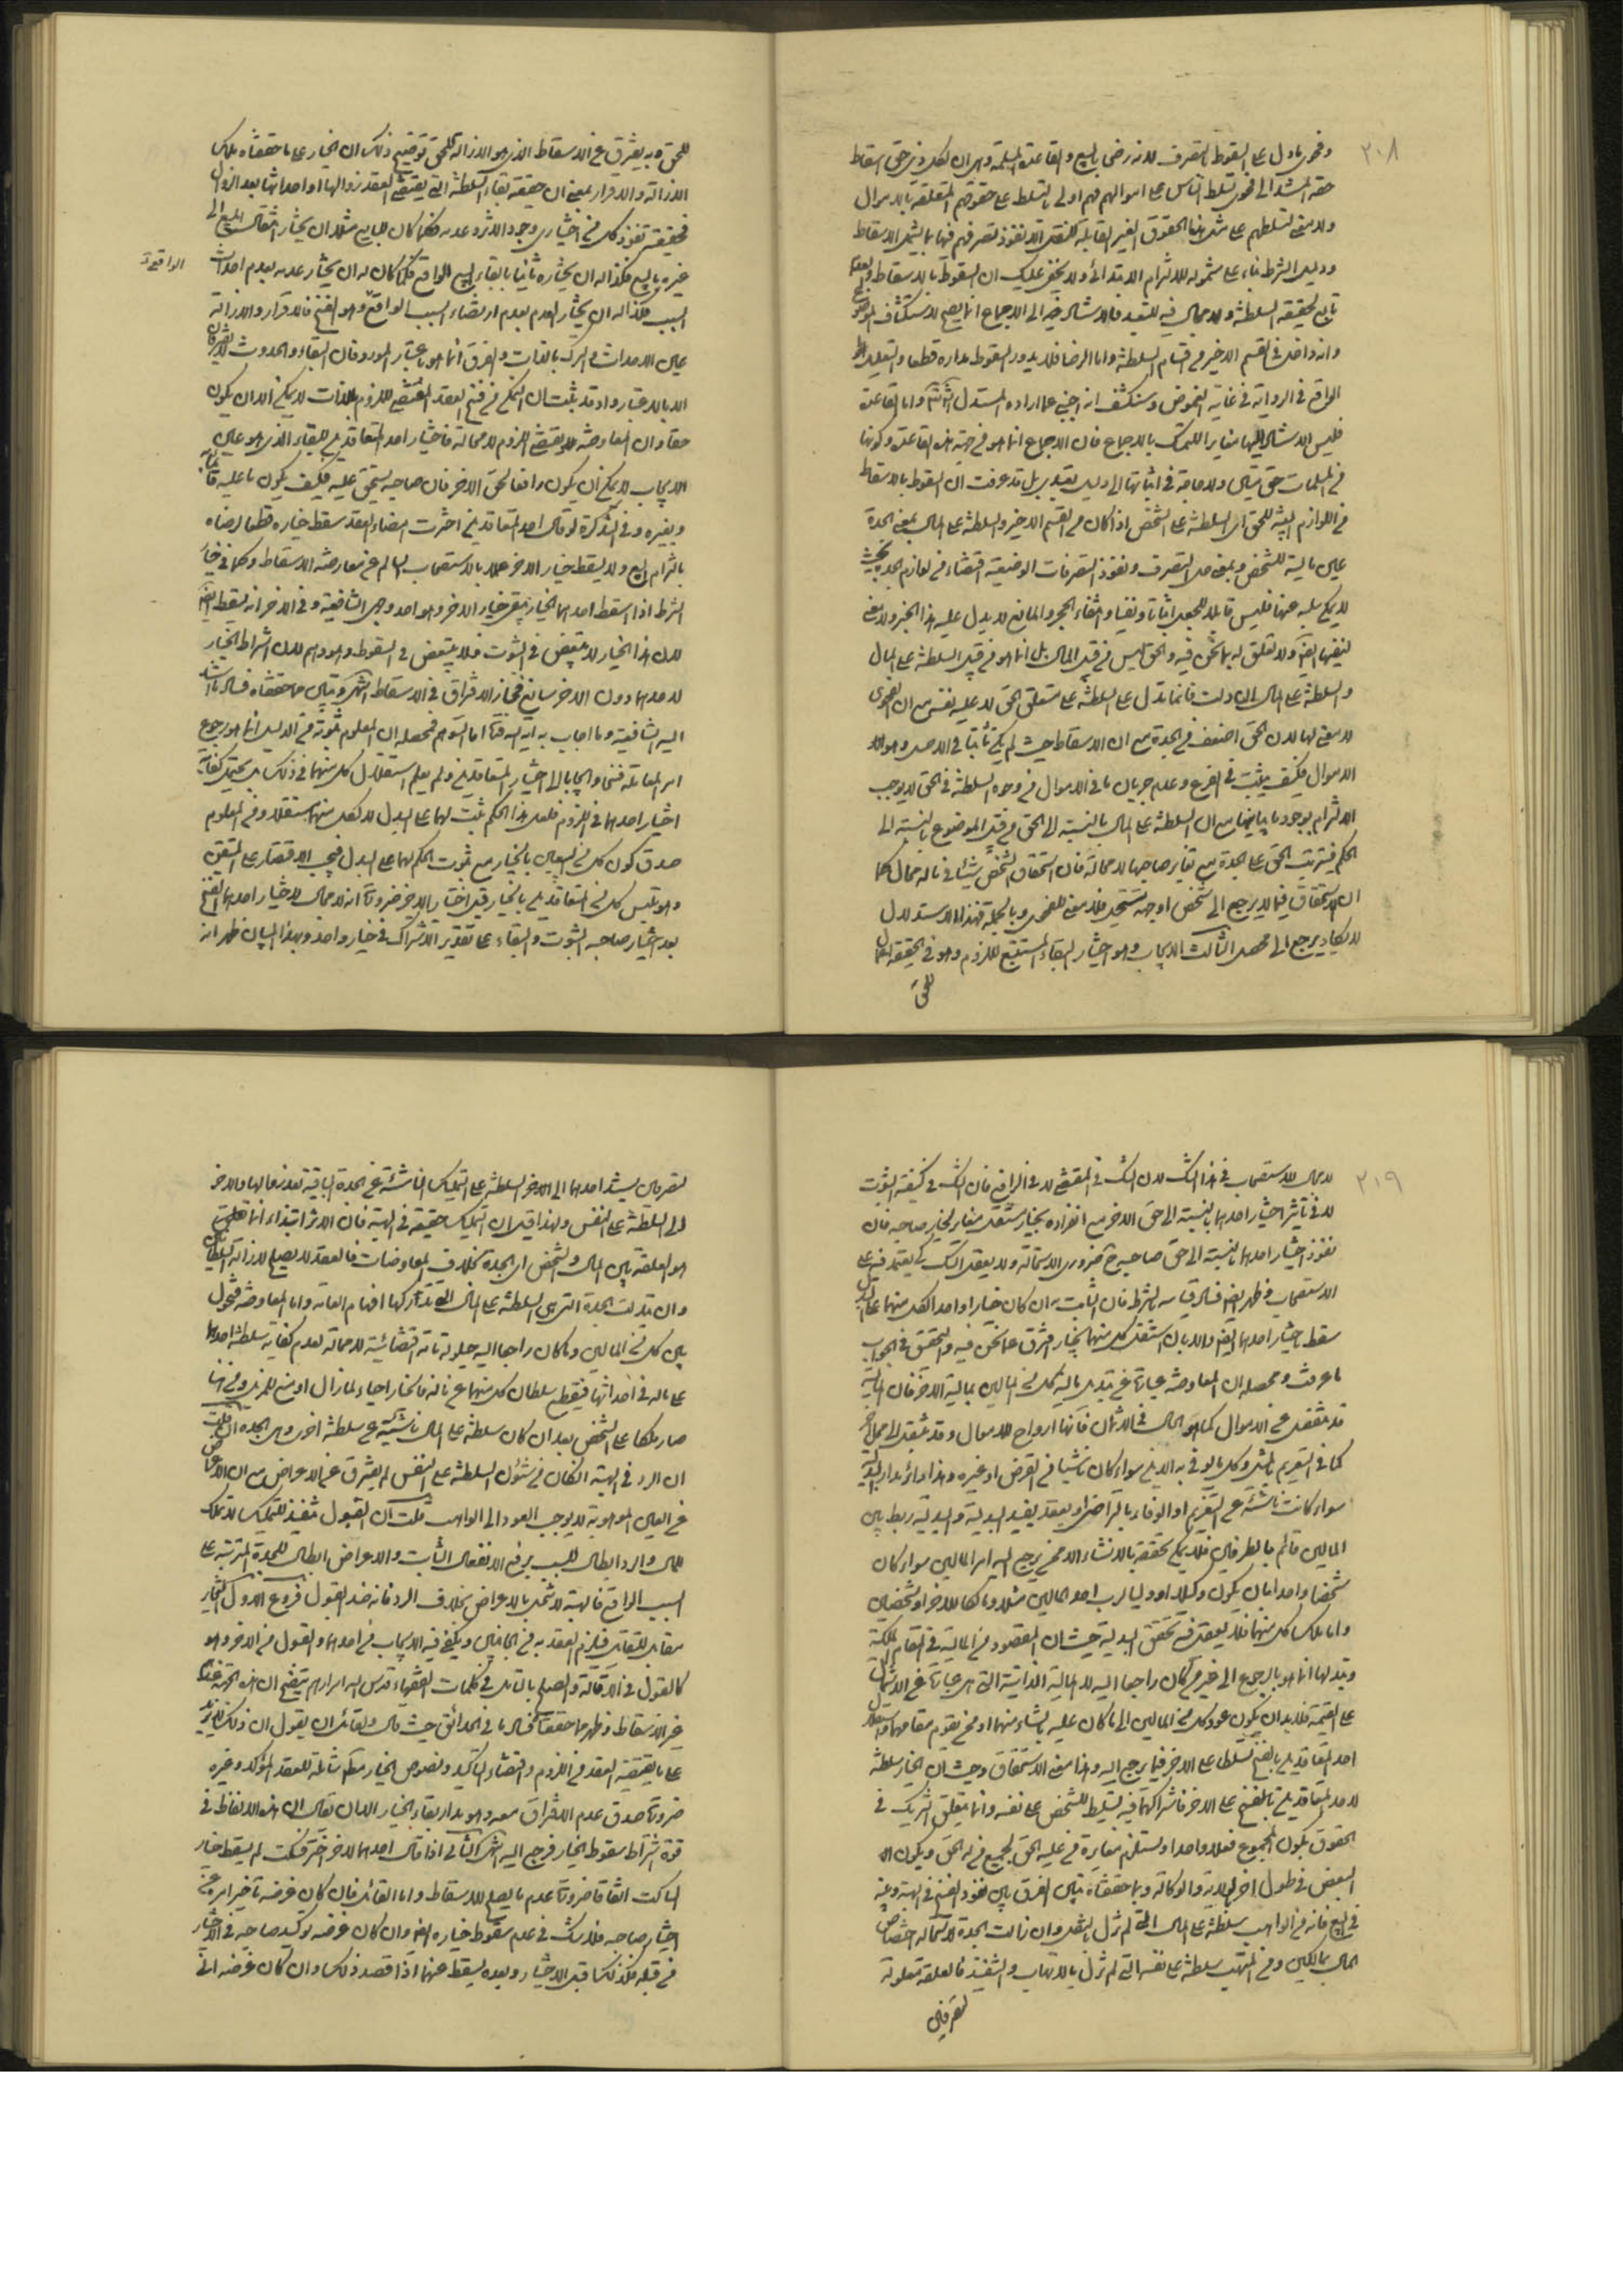 ٢٠٨
وفحوى ما دل على السقوط بالتصرف لانه رضى بالبيع والقاعدة المسلمة وهى ان لكل ذى حق اسقاط
حقه المستند الى فحوى تسلط الناس على اموالهم فهم اولى بالتسلط على حقوقهم المتعلقة بالاموال
ولا معنى لتسلطهم على مثل هذه الحقوق الغير القابلة للنقل الا نفوذ تصرفهم فيها بما يشمل الاسقاط
ودليل الشرط بناء على شموله للالتزام الابتدائى ولا يخفى عليك ان السقوط بالاسقاط
تابع لحقيقة السلطنة ولا مجال فيه للتعبد فالاستناد فيه الى الاجماع انما يصح لاستكشاف الموضوع
وانه داخل فى القسم الاخير من اقسام السلطنة واما الرضا فلا يدور السقوط مداره قطعا والتعليل
الواقع فى الرواية فى غاية الغموض وسنكشف انه اجنبى عما اراده المستدل واما القاعدة
فليس الاستناد اليها مغايرا للتمسك بالاجماع فان الاجماع انما هو فى حجية هذه القاعدة وكونها
من المسلمات حتى يقال ولا حاجة فى اثباتها الى دليل تعبدى بل قد عرفت ان السقوط بالاسقاط
من اللوازم البينة للحق اى السلطنة على الشخص اذا كان من القسم الاخير والسلطنة على المال بمعنى الجدة
لا يمكن سلبه عنها فليس قابلا للجعل اثباتا ونفيا وانتفاء الحجر والمانع لا يدل عليه هذا الخبر ولا معنى
لنفيها ايضا ولا تعلق له بما نحن فيه والحق ليس من قبيل المال بل انما هو من قبيل السلطنة على المال
والسلطنة على المال ان دلت فانما تدل على السلطنة على متعلق الحق لا عليه نفسه مع ان الفحوى
لا معنى لها لان الحق اضعف من الجدة مع ان الاسقاط حيث لم يكن ثابتا فى الاصل وهو
الاموال فكيف يثبت فى الفرع وعدم جريان ما فى الاموال من وجوه السلطنة فى الحق لا يوجب
الالتزام بوجود ما يباينها مع ان السلطنة على المال بالنسبة الى الحق من قبيل الموضوع بالنسبة الى
الحكم فيترتب الحق على الجدة مع تغاير صاحبها لا محالة فان استحقاق الشخص شيئا فى ماله محال كما
ان الاستحقاق فيما لا يرجع الى شخص او جهة مستحيل فلا معنى للفحوى وبالجملة فهذا الاستدلال
لا يكاد يرجع الى محصل الثالث الايجاب وهو اختيار البقاء المستتبع للزوم وهو فى الحقيقة اعمال
للحق
للحق وبه يفترق عن الاسقاط الذى هو الازالة للحق توضيح ذلك ان الخيار على ما حققناه ملك
الازالة والاقرار بمعنى ان حقيقة بقاء السلطنة التى يقتضى العقد زوالها او احداثها بعد الزوال
فحقيقته نفوذ كل من اختيارى وجود الاثر وعدمه فكما كان للبايع مثلا ان يختار انتقال المبيع الى
غيره بالبيع فكذا له ان يختاره ثانيا بابقاء البيع الواقع فكما كان له ان يختار عدمه بعدم احداث
السبب فكذا له ان يختار العدم بعدم ارتضاء السبب الواقع وهو الفسخ فالاقرار والازالة
الواقع
عين الاحداث والترك بالذات والفرق انما هو باعتبار المورد فان البقاء والحدوث لا يفترقان
الا بالاعتبار واذ قد ثبت ان التمكن من فسخ العقد المقتضى للزوم بالذات لا يمكن الا ان يكون
حقا وان المعاوضة تقتضى اللزوم لا محالة فاختيار احد المتعاقدين للبقاء الذى هو عين
الايجاب لا يمكن ان يكون رافعا لحق الاخر فان صاحبه يستحق عليه فكيف يكون ما عليه قائما به
وبغيره وفى التذكرة لو قال احد المتعاقدين اخترت امضاء العقد سقط خياره قطعا لرضاه
بالتزام البيع ولا يسقط خيار الاخر عملا بالاستصحاب السالم عن معارضة الاسقاط وكما فى خيار
الشرط اذا اسقط احدهما الخيار يبقى خيار الاخر وهو احد وجهى الشافعية وفى الاخر انه يسقط ايضا
لان هذا الخيار لا يتبعض فى الثبوت فلا يتبعض فى السقوط وهو وهم لان اشراط الخيار
لاحدهما دون الاخر سائغ فجاز الافتراق فى الاسقاط انتهى وتبين مما حققناه فساد ما استند
اليه الشافعية وما اجاب به آية الله فتأمل اما التوهم فمحصله ان المعلوم ثبوته من الدليل انما هو رجوع
امر المعاملة فسخا وايجابا الى اختيار المتعاقدين ولم يعلم استقلال كل منهما فى ذلك بل يحتمل كفاية
اختيار احدهما فى اللزوم فلعل هذا الحكم ثبت لهما على البدل لا لكل منهما مستقلا ومن المعلوم
صدق كون كل من البيعين بالخيار مع ثبوت الحكم لهما على البدل فيجب الاقتصار على المتيقن
وهو تلبس كل من المتعاقدين بالخيار قبل اختيار الاخر ضرورة انه لا مجال لاختيار احدهما الفسخ
بعد اختيار صاحبه الثبوت والبقاء على تقدير الاشتراك فى خيار واحد وبهذا البيان ظهر انه
٢١٩
لا مجال للاستصحاب فى هذا الشك لان الشك فى المقتضى لا فى الرافع فان الشك فى كيفية الثبوت
لا فى تأثير اختيار احدهما بالنسبة الى حق الاخر مع انفراده بخيار مستقل مغاير لخيار صاحبه فان
نفوذ اختيار احدهما بالنسبة الى حق صاحبه ح ضرورى الاستحالة ولا يعقل الشك كى يعتمد فيه على
الاستصحاب وظهر ايضا فساد قياسه بالشرط فان الثابت به ان كان خيارا واحدا لكل منهما على البدل
سقط باختيار احدهما ايضا والا بان استقل كل منهما بخيار افترق عما نحن فيه والتحقيق فى الجواب
ما عرفت ومحصله ان المعاوضة عبارة عن تبديل مالية كل من المالين بمالية الاخر فان المالية
قد تنفك عن الاموال كما هو الحال فى الاثمان فانها ارواح للاموال وقد تنتقل الى محل اخر
كما فى التغريم بالمثل وكل ما يوفى به الدين سواء كان ناشيا من القرض او غيره وهذا دائر مدار البدلية
سواء كانت ناشئة عن التغريم او الوفاء بالتراضى او بعقد يفيد البدلية والبدلية ربط بين
المالين قائم بالطرفين فلا يمكن تحققه بالانشاء الا ممن يرجع اليه امر المالين سواء كان
شخصا واحدا بان يكون وكيلا او وليا لرب احد المالين مثلا ومالكا للاخر او شخصين
واما ملك كل منهما فلا يعقل فيه تحقق البدلية حيث ان المقصود من المالية فى المقام الملكية
وتبدلها انما هو بالرجوع الى غير من كان راجعا اليه لا المالية الذاتية التى هى عبارة عن الاشتمال
على القيمة فلا بد ان يكون عود كل من المالين الى ما كان عليه بانشاء منهما او ممن يقوم مقامهما واستقلال
احد المتعاقدين بالفسخ تسلط على الاخر فيما يرجع اليه وهذا معنى الاستحقاق وحيث ان الخيار سلطنة
لاحد المتعاقدين بالفسخ على الاخر فاشتراكهما فيه تسليط للشخص على نفسه وانما يتعلق الشريك فى
الحقوق بكون المجموع فعلا واحدا ويستلزم مغايرة من عليه الحق لجميع من له الحق ويكون
البعض فى طول اخر كالولاية والوكالة وبما حققناه تبين الفرق بين نفوذ الفسخ فى الهبة وعنه
فى البيع فانه من الواهب سلطنة على المال التى لم تزل بالنقل وان زالت الجدة لاستحالة اختصاص
المال بمالكين ومن المتهب سلطنة على نفسه التى لم تزل بالاتهاب والتنفيذ فالعلقة متعلقة
لطرفين
لطرفين يستند احدهما الى الاخر السلطنة على التمليك الناشئة عن الجدة الباقية بعد زوالها والاخر
الى السلطنة على النفس ولهذا قيل ان التمليك حقيقة فى الهبة فان الاثر ابتداء انما
هو العلقة بين المال والشخص اى الجدة بخلاف المعاوضات فالعقد لا يصلح لازالة السلطان
وان تبدلت الجدة التى هى السلطنة على المال التى تدركها افهام العامة واما المعاوضة فتحول
بين كل من المالين وما كان راجعا اليه حيلولة تامة اقتضائية لا محالة لعدم كفاية سلطنة احدهما
على ماله فى احداثها فينقطع سلطان كل منهما عن ماله فالخيار احياء لما زال او منع للمزيل ومن هنا
صار ملكا على الشخص بعد ان كان سلطنة على المال ناشئة عن سلطنة اخرى وهى الجدة ان قلت
ان الرد فى الهبة ان كان من شئون السلطنة على النفس لم يفترق عن الاعراض مع ان الاعراض
عن العين الموهوبة لا يوجب العود الى الواهب قلت ان القبول تنفيذ للتمليك لا تملك
للمال والرد ابطال للسبب برفع الانفعال الثابت والاعراض ابطال للجدة المترتبة على
السبب الواقع فالهبة لا تنحل بالاعراض بخلاف الرد فانه ضد القبول فروع الاول الخيار
مقابل للتقايل فيلزم العقد به من الجانبين ويكفى فيه الايجاب من احدهما والقبول من الاخر وهو
كالقول فى الاقالة والصلح بالتأمل فى كلمات الفقهاء قدس الله اسرارهم يتضح ان هذه
غير الاسقاط وظهر مما حققناه فساد ما فى الحدائق حيث قال ولقائل ان يقول ان ذلك لا يزيد
على ما يقتضيه العقد من اللزوم واقتضاء التأكيد ونصوص الخيار مطلقة شاملة للعقد المؤكد وغيره
ضرورة صدق عدم الافتراق معه وهو مدار بقاء الخيار الا ان يقال ان هذه الالفاظ فى
قوة اشتراط سقوط الخيار فرجع اليه انتهى الثانى اذا قال احدهما للاخر اختر فسكت لم يسقط خيار
الساكت اتفاقا ضرورة عدم ما يصلح للاسقاط واما القائل فان كان غرضه تأخير امره عن
اختيار صاحبه فلا شك فى عدم سقوط خياره ايضا وان كان غرضه توكيد صاحبه فى الاختيار
من قبله فكذلك قبل الاختيار وبعده يسقط عنهما اذا قصد ذلك وان كان غرضه انى